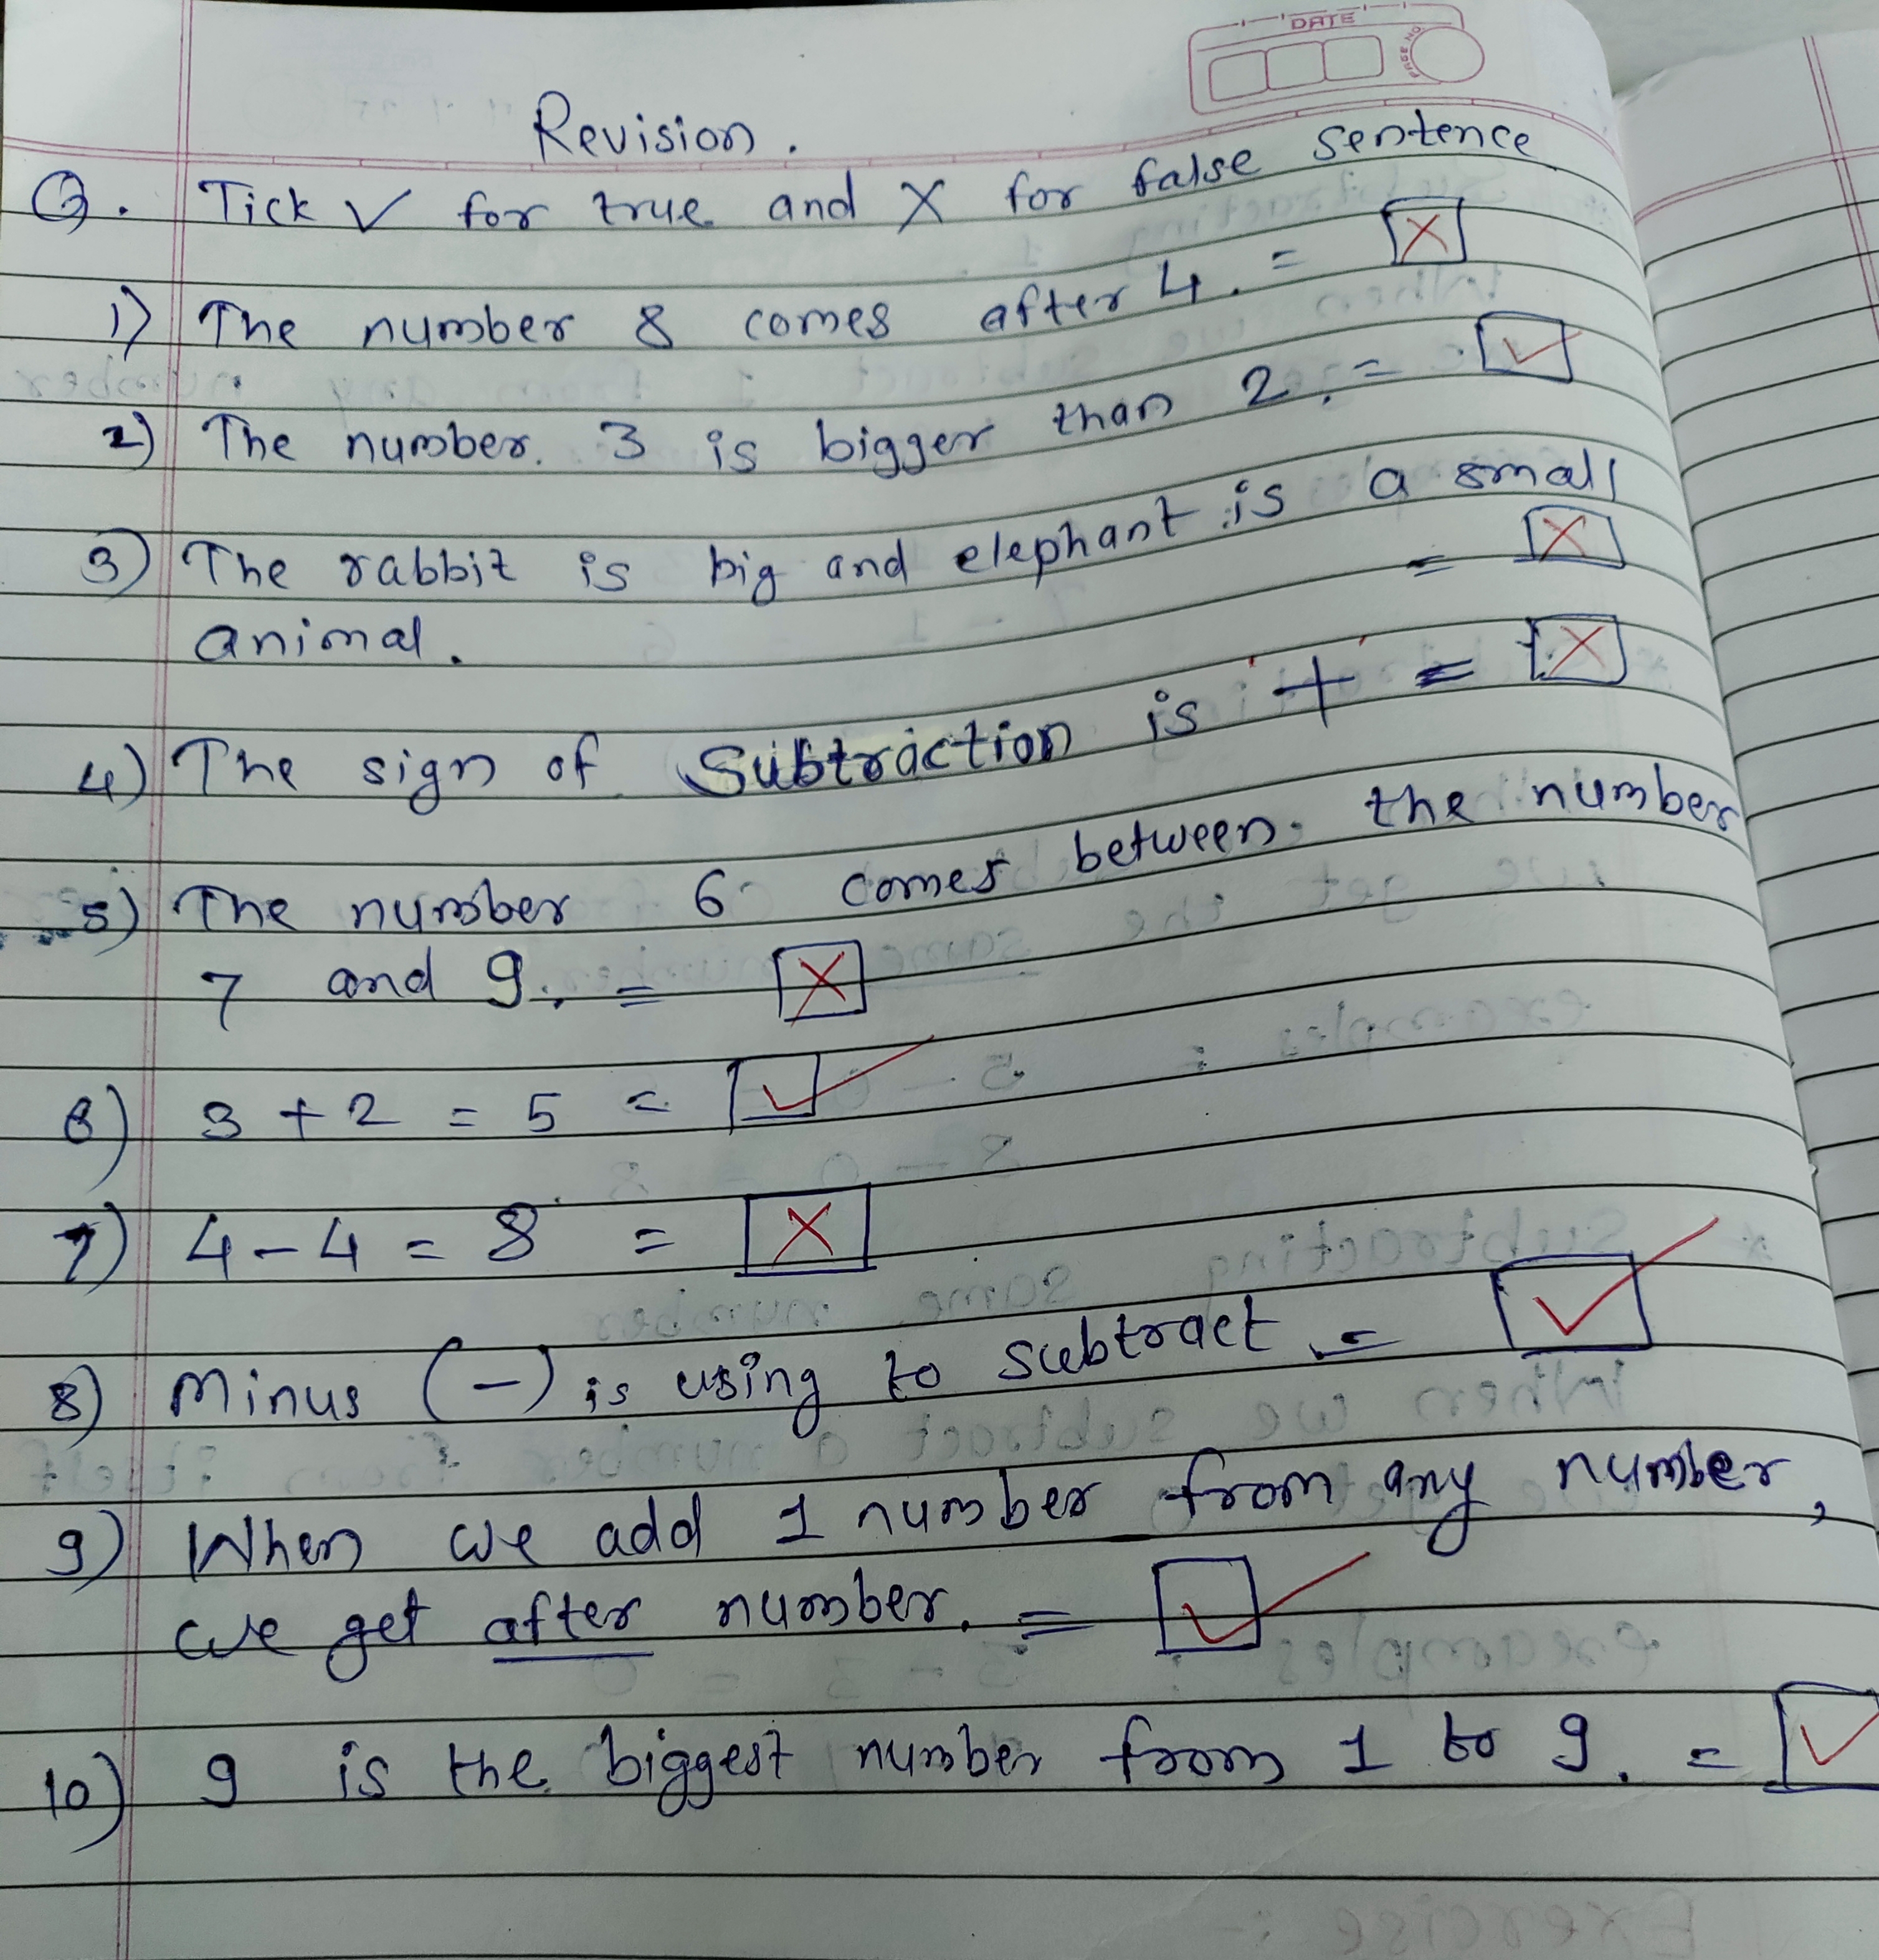 DATE
PAGE NO
Revision.
Q. Tick ✓ for true and X for false sentence
1) The number 8 comes after 4. = X
2) The number. 3 is bigger than 2. = ✓
3) The rabbit is big and elephant is a small
animal. = X
4) The sign of Subtraction is + = X
5) The number 6 comes between the number
7 and 9. = X
6) 3 + 2 = 5 = ✓
7) 4 - 4 = 8 = X
8) Minus (-) is using to subtract. = ✓
9) When we add 1 number from any number,
we get after number. = ✓
10) 9 is the biggest number from 1 to 9. = ✓